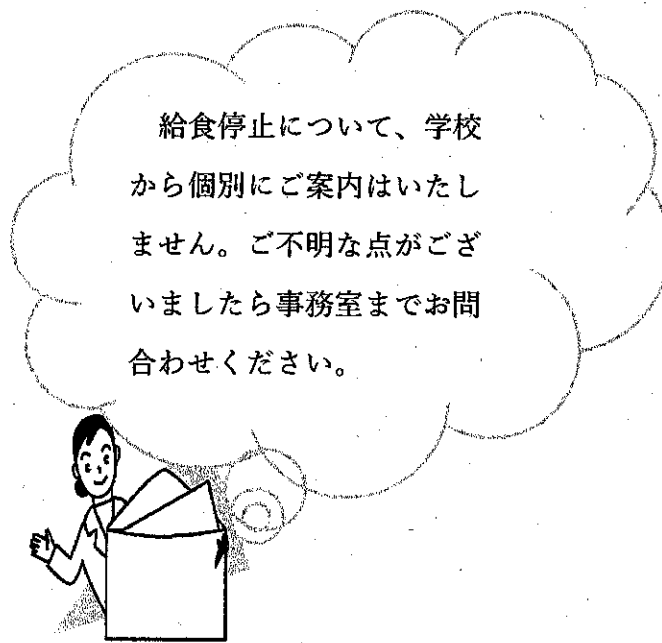 給食停止について、学校
から個別にご案内はいたし
ません。ご不明な点がござ
いましたら事務室までお問
合わせください。